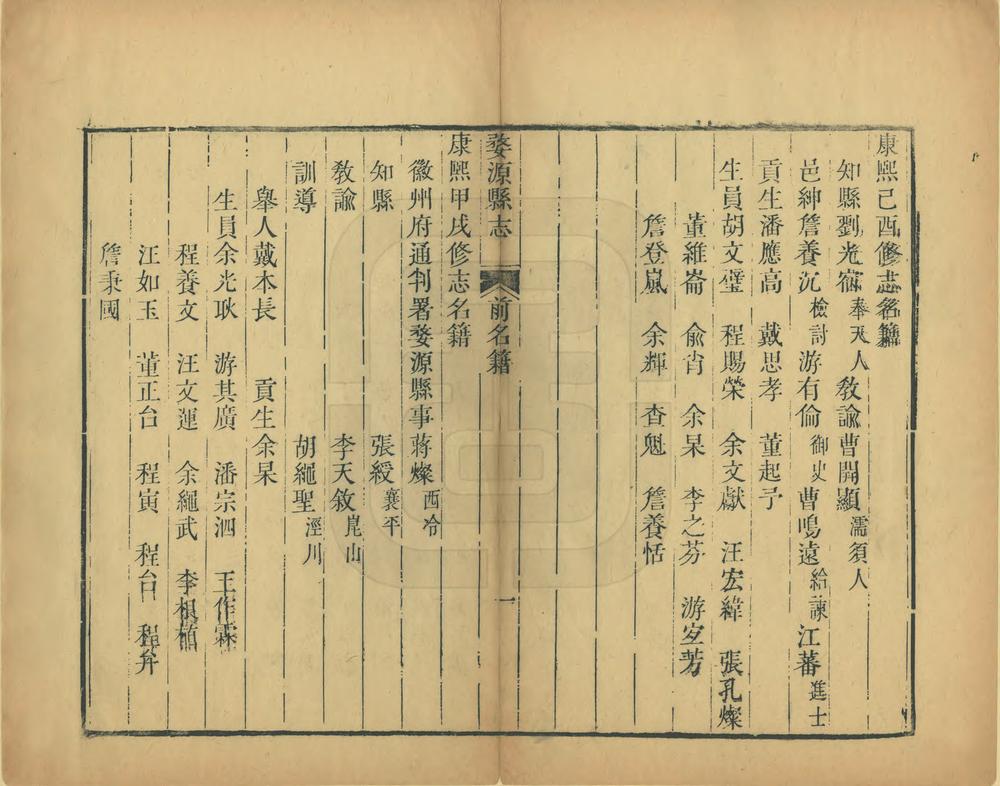 康熙己酉修志名籍
知縣劉光宿奉天人敎諭曹開顯濡須人
邑紳詹養沉檢討游有倫御史曹鳴遠給諫江蕃進士
貢生潘應高 戴思孝 董起予
生員胡文璧 程賜榮 余文獻 汪宏緯 張孔燦
董維崙 俞肯 余杲 李之芬 游定芳
詹登嵐 余輝 查魁 詹養恬
婺源縣志 前名籍 一
康熙甲戌修志名籍
徽州府通判署婺源縣事蔣燦西冷
知縣 張綬襄平
敎諭 李天敘崑山
訓導 胡繩聖涇川
舉人戴本長 貢生余杲
生員余光耿 游其廣 潘宗泗 王作霖
程養文 汪文運 余繩武 李根
汪如玉 董正台 程寅 程台 程弁
詹秉國